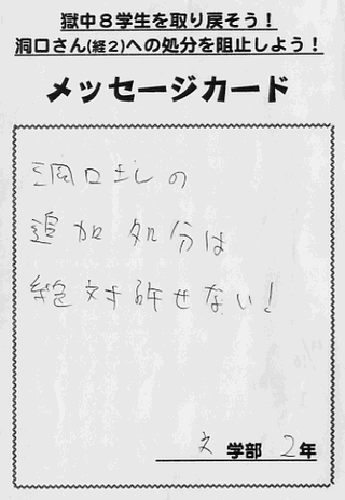 獄中８学生を取り戻そう！
洞口さん(経２)への処分を阻止しよう！
メッセージカード
洞口さんの
追加処分は
絶対許せない！
文学部 2年